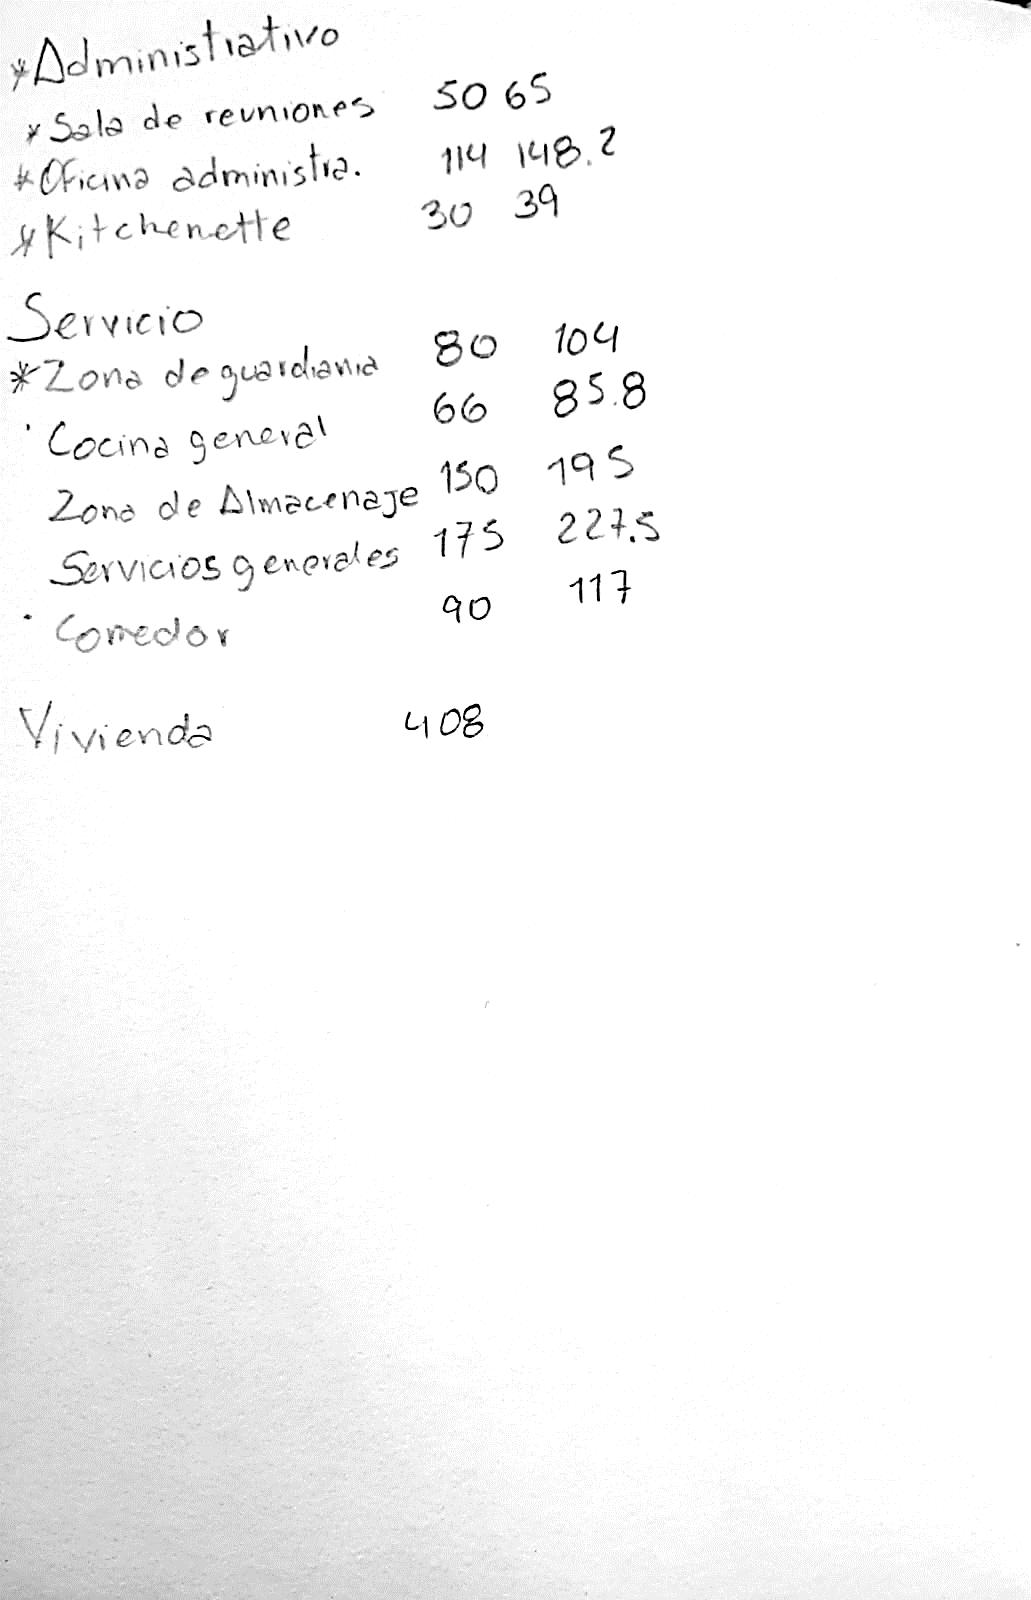 * Administrativo
* Sala de reuniones 50 65
* Oficina administra. 114 148.2
* Kitchenette 30 39
Servicio
* Zona de guardiania 80 104
· Cocina general 66 85.8
Zona de Almacenaje 150 195
Servicios generales 175 227.5
· Comedor 90 117
Vivienda 408